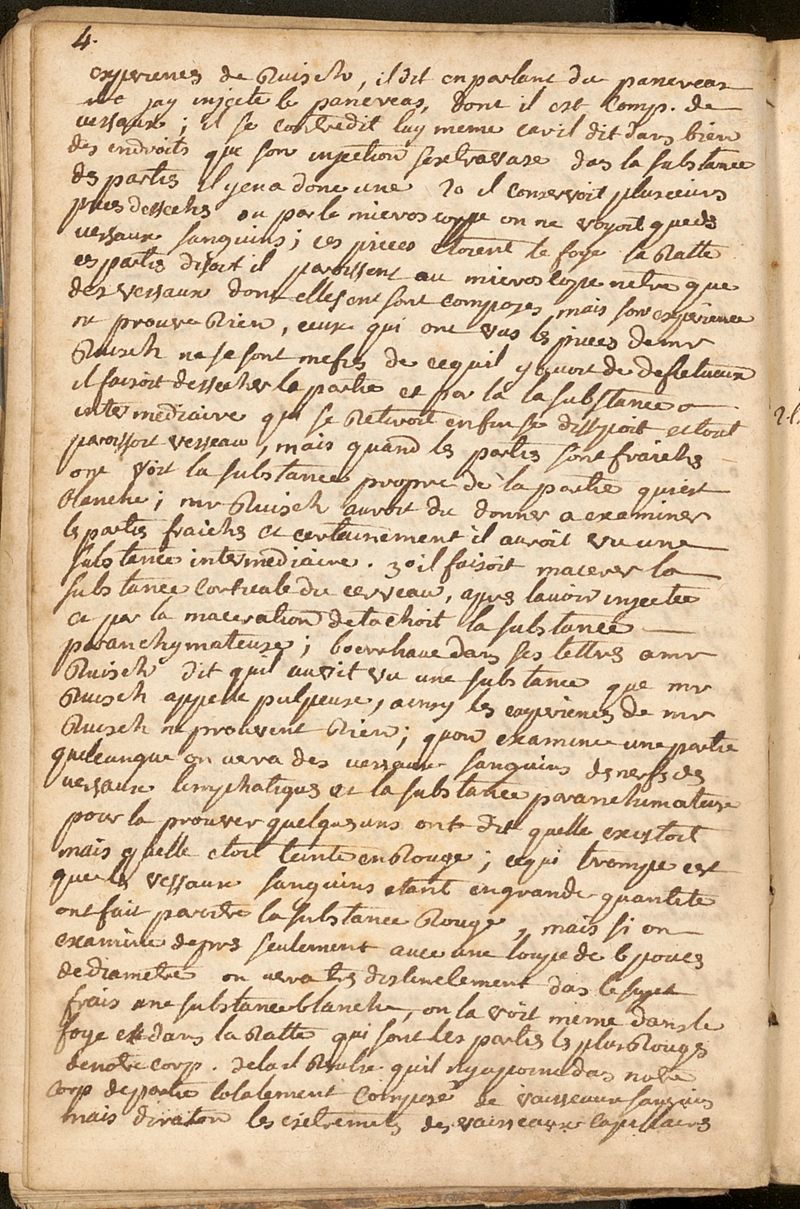 4.
experiences de Ruisch, il dit en parlant du pancreas
jay injecté le pancreas, dont il est comp. de
vessaux; il se contredit luy meme car il dit dans bien
des endroits que son injection sextravase das la substance
ds partis il yena donc une 2o il conservoit plusieurs
pieces dessechés ou par le microscoppe on ne voyoit queds
vessaux sanguins; ces pieces etoient le foye la Ratte
ces partis disoit il paroissent au microscope netre que
des vessaux dont elles ont sont composés, mais son experience
ne prouve Rien, ceux qui ont vus ls pieces de mr
Ruisch ne se sont mefiés de cequil y avoit de defectueux
il faisoit dessecher la partie et par la la substance
intermediaire qui se Retiroit enfin se dissipoit et tout
paroissoit vesseau, mais quand ls partis sont fraiches
ont voit la substance propre de la partie qui est
blanche; mr Ruisch auroit du donner a examiner
ls partis fraichs et certainement il auroit vu une
substance intermediaire. 3o il faisoit macerer la
substance corticale du cerveau, apres lavoir injectée
et par la maceration detachoit la substance
paranchymateuse; boerrhaave dans ses lettres a mr
Ruisch dit quil auoit vu une substance que mr
Ruisch appelle pulpeuse, ainsy les experiences de mr
Ruisch ne prouvent Rien; quon examine une partie
quelcunque on vera des vessaux sanguins ds nerfs ds
vessaux limphatiques et la substance paranchimateuse
pour la prouver quelquesuns ont dit quelle existoit
mais quelle etoit teinte en Rouge; cequi trompe est
que ls vessaux sanguins etant en grande quantité
ont fait paroitre la substance Rouge, mais si on
examine de prs seulement avec une loupe de 6 pouces
de diametre on vera trs distinctement das le sujet
frais une substance blanche, on la voit meme dans le
foye et dans la Ratte qui sont les partis ls plus Rougs
de notre corp. dela il Resulte quil ny a point das notre
corp de partie totalement composé de vaisseaux sanguins
mais dira ton les extremités des vaisseaux capillaires